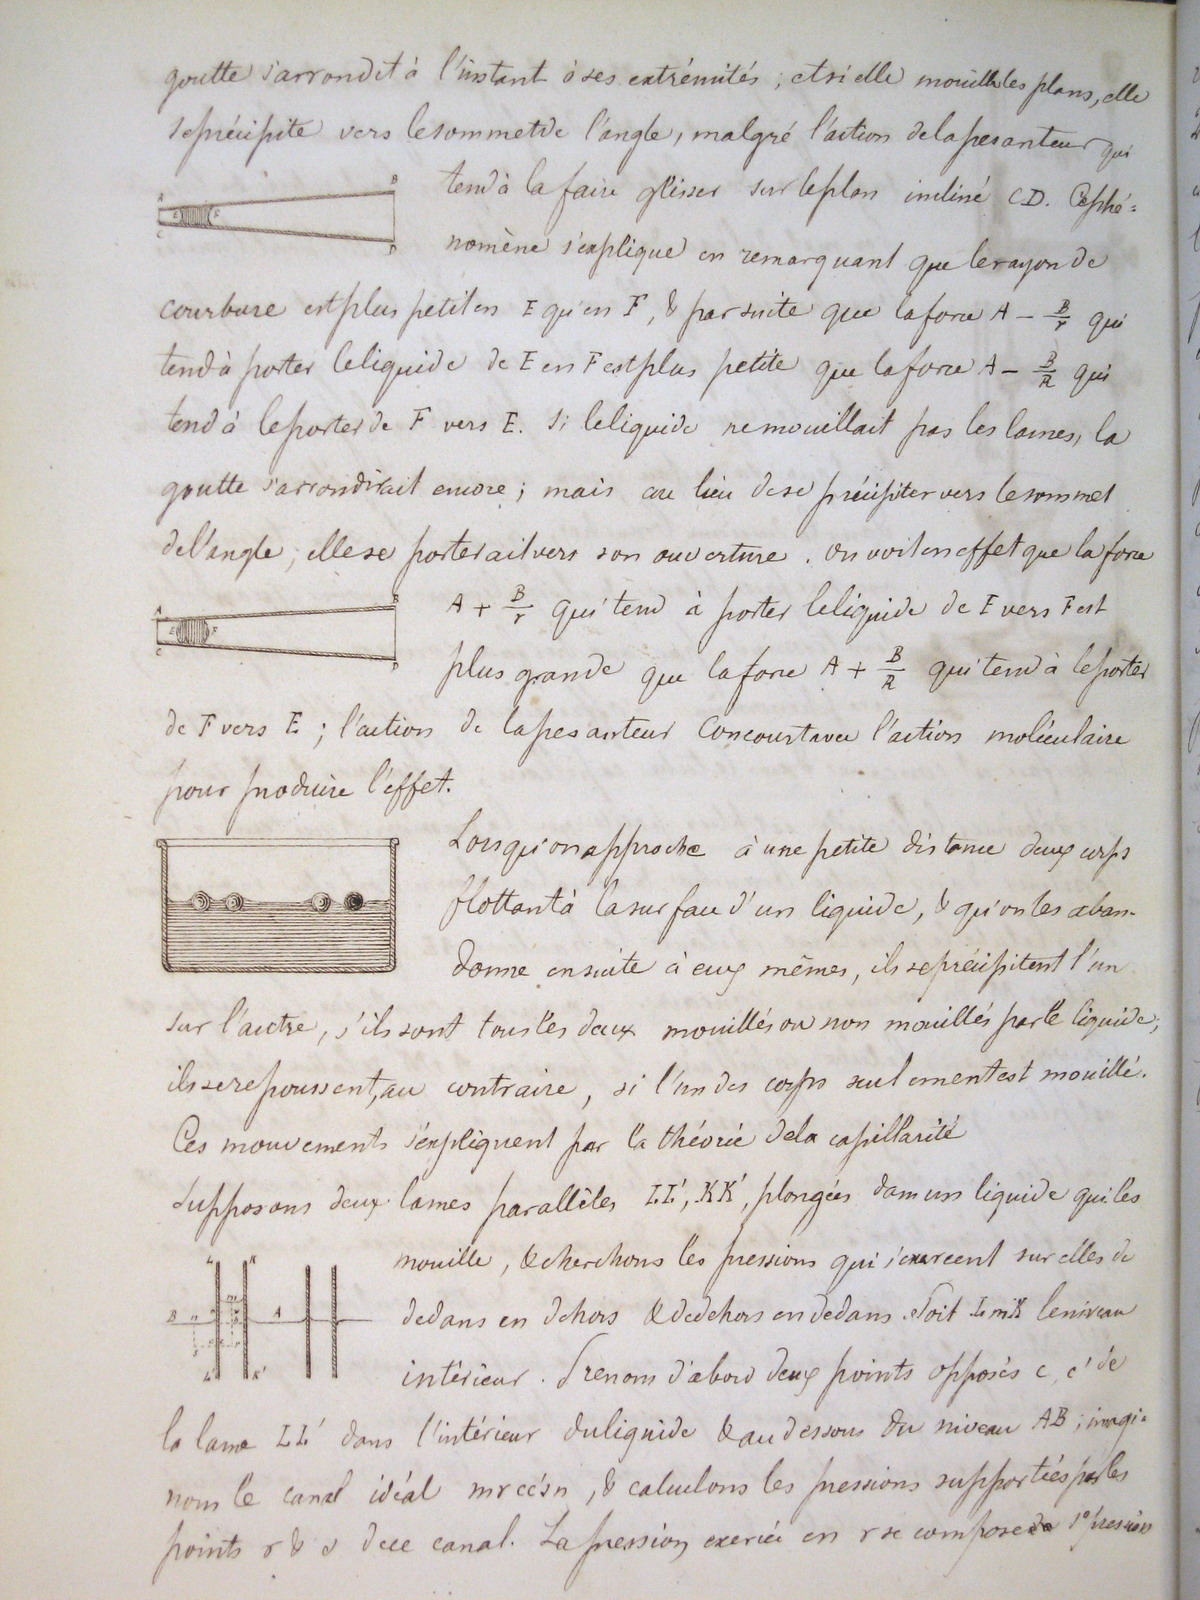 goutte s'arrondit à l'instant à ses extrémités ; et si elle mouille les plans, elle
se précipite vers le sommet de l'angle, malgré l'action de la pesanteur qui
tend à la faire glisser sur le plan incliné CD. Ce phé=
nomène s'explique en remarquant que le rayon de
courbure est plus petit en E qu'en F, & par suite que la force A - B/r qui
tend à porter le liquide de E en F est plus petite que la force A - B/R qui
tend à le porter de F vers E. Si le liquide ne mouillait pas les lames, la
goutte s'arrondirait encore ; mais au lieu de se précipiter vers le sommet
de l'angle, elle se porterait vers son ouverture. On voit en effet que la force
A + B/r qui tend à porter le liquide de E vers F est
plus grande que la force A + B/R qui tend à le porter
de F vers E ; l'action de la pesanteur concourt avec l'action moléculaire
pour produire l'effet.
Lorsqu'on approche à une petite distance deux corps
flottant à la surface d'un liquide, & qu'on les aban-
donne ensuite à eux mêmes, ils se précipitent l'un
sur l'autre, s'ils sont tous les deux mouillés ou non mouillés par le liquide ;
ils se repoussent, au contraire, si l'un des corps seulement est mouillé.
Ces mouvements s'expliquent par la théorie de la capillarité
Supposons deux lames parallèles LL', KK', plongées dans un liquide qui les
mouille, & cherchons les pressions qui s'exercent sur elles de
dedans en dehors & de dehors en dedans. Soit LmK le niveau
intérieur. Prenons d'abord deux points opposés c, c' de
la lame LL' dans l'intérieur du liquide & au dessous du niveau AB ; imagi=
nons le canal idéal mrcc'sn, & calculons les pressions supportées par les
points r & s de ce canal. La pression exercée en r se compose de 1° pression
A B
C D
E F
A B
C D
E F
L K
B n m A
L' K'